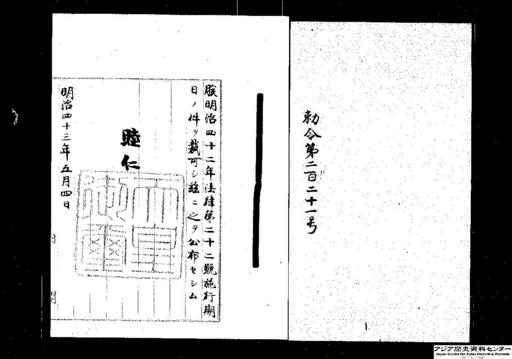 勅令第二百二十一号
朕明治四十二年法律第二十二號施行期
日ノ件ヲ裁可シ茲ニ之ヲ公布セシム
睦仁
天皇御璽
明治四十三年五月四日
アジア歴史資料センター
Japan Center for Asian Historical Records